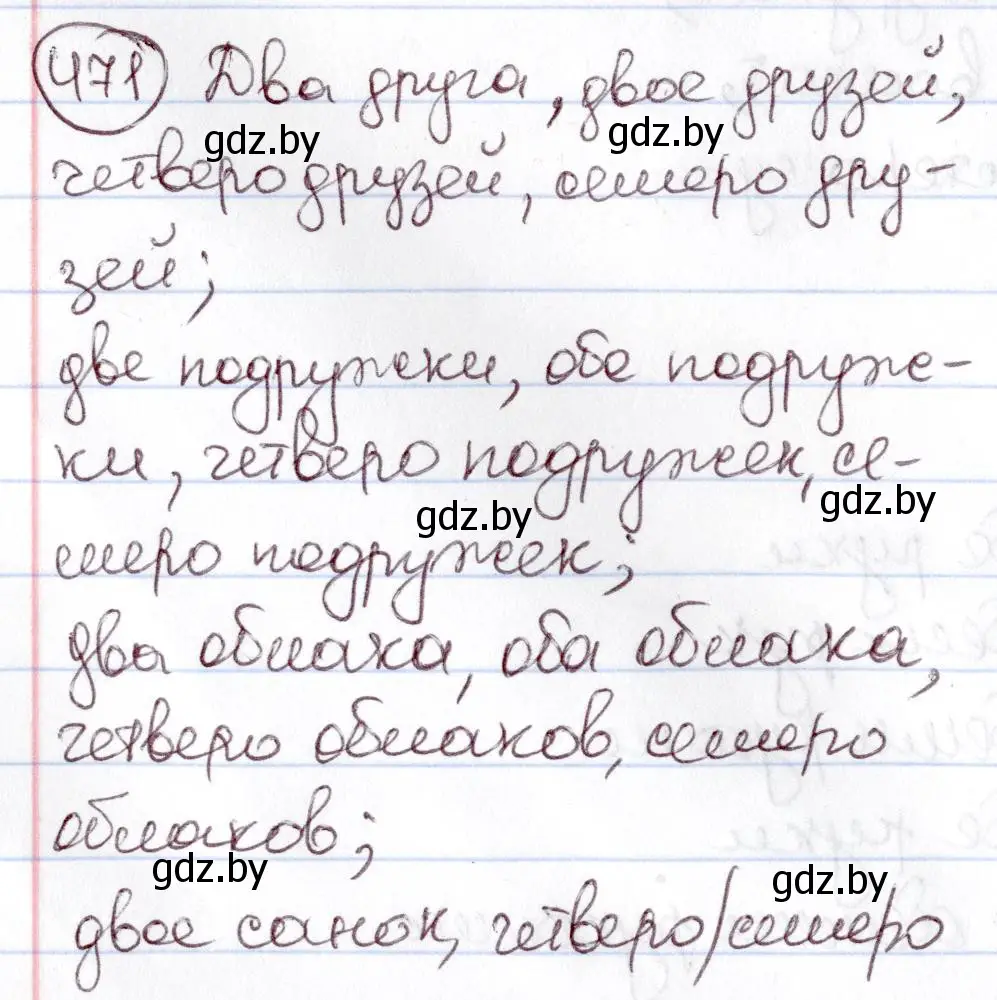 471 Два друга, двое друзей,
gdz.by gdz.by
четверо друзей, семеро дру-
зей;
две подружки, обе подруж-
ки, четверо подружек, се-
gdz.by gdz.by
меро подружек;
два облака, оба облака,
четверо облаков, семеро
облаков;
gdz.by gdz.by
двое санок, четверо/семеро